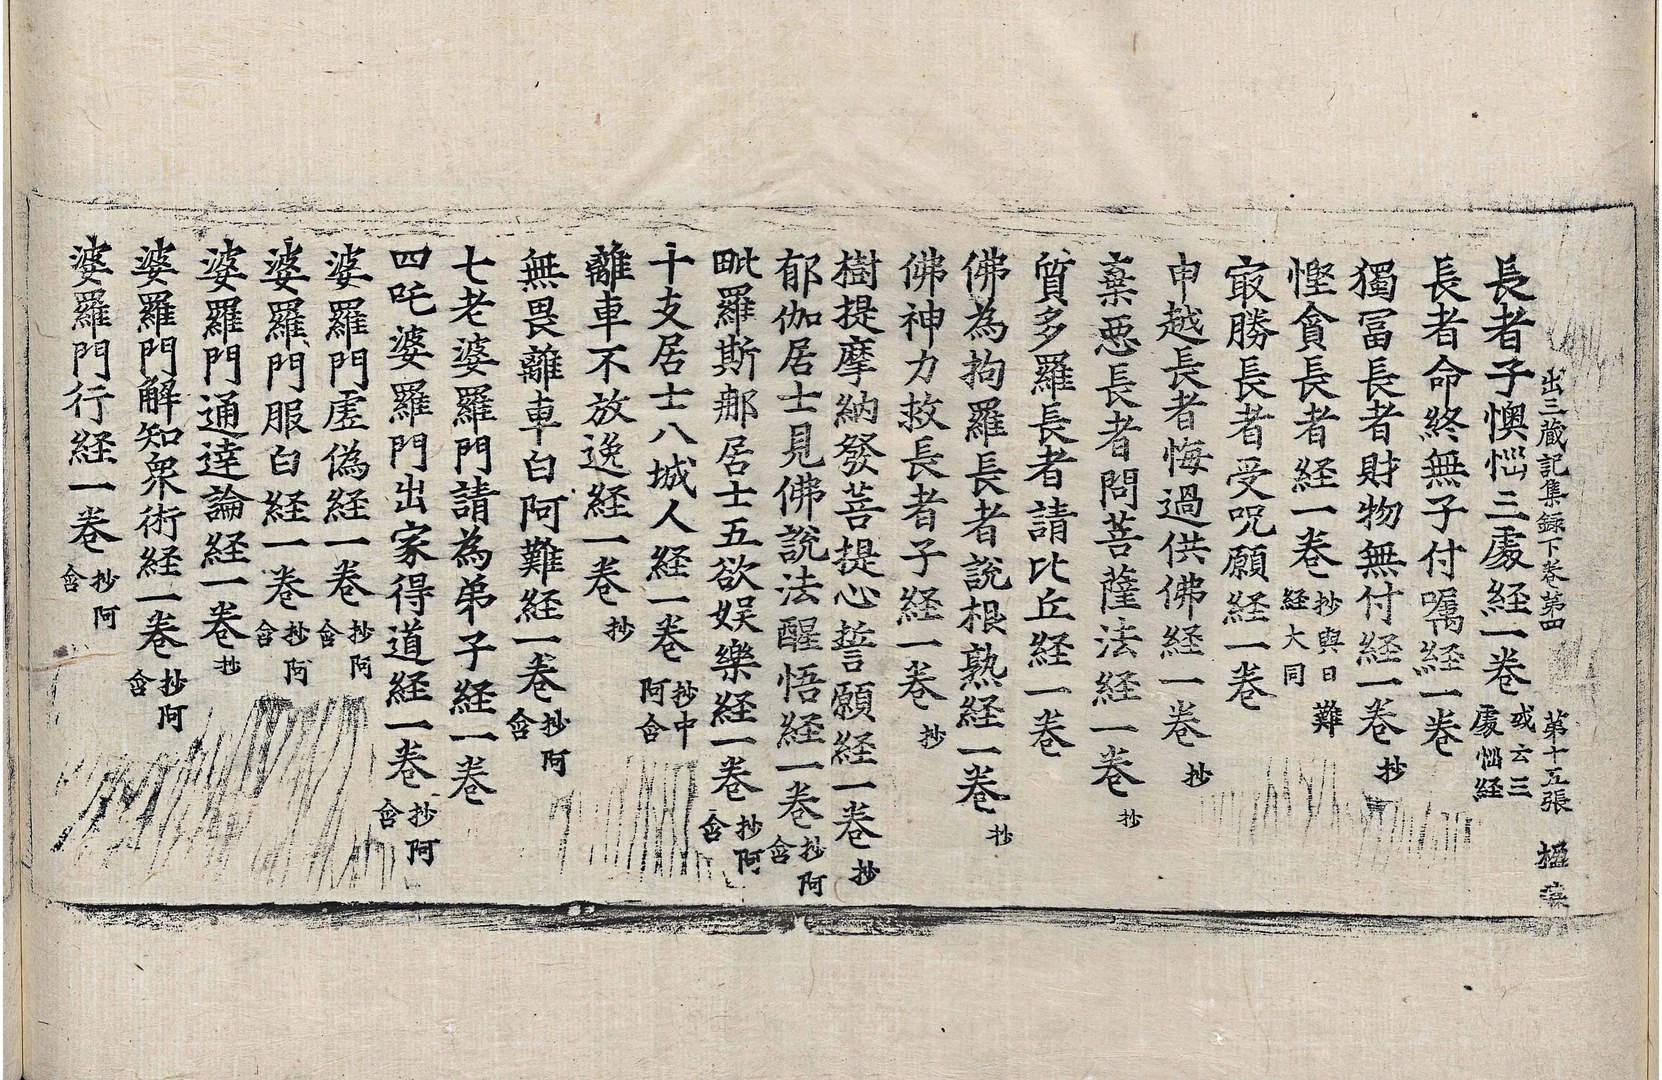 出三蔵記集録下卷第四　第十五張
長者子懊惱三處経一卷 或云三處惱経
長者命終無子付嘱経一卷
獨冨長者財物無付経一卷 抄
慳貪長者経一卷 抄與日難経大同
㝡勝長者受呪願経一卷
申越長者悔過供佛経一卷 抄
棄惡長者問菩薩法経一卷 抄
質多羅長者請比丘経一卷
佛為拘羅長者說根熟経一卷 抄
佛神力救長者子経一卷 抄
樹提摩納發菩提心誓願経一卷 抄
郁伽居士見佛說法醒悟経一卷 抄阿含
毗羅斯那居士五欲娛樂経一卷 抄阿含
十支居士八城人経一卷 抄中阿含
離車不放逸経一卷 抄
無畏離車白阿難経一卷 抄阿含
七老婆羅門請為弟子経一卷
四吒婆羅門出家得道経一卷 抄阿含
婆羅門虛偽経一卷 抄阿含
婆羅門服白経一卷 抄阿含
婆羅門通達論経一卷 抄
婆羅門解知衆術経一卷 抄阿含
婆羅門行経一卷 抄阿含